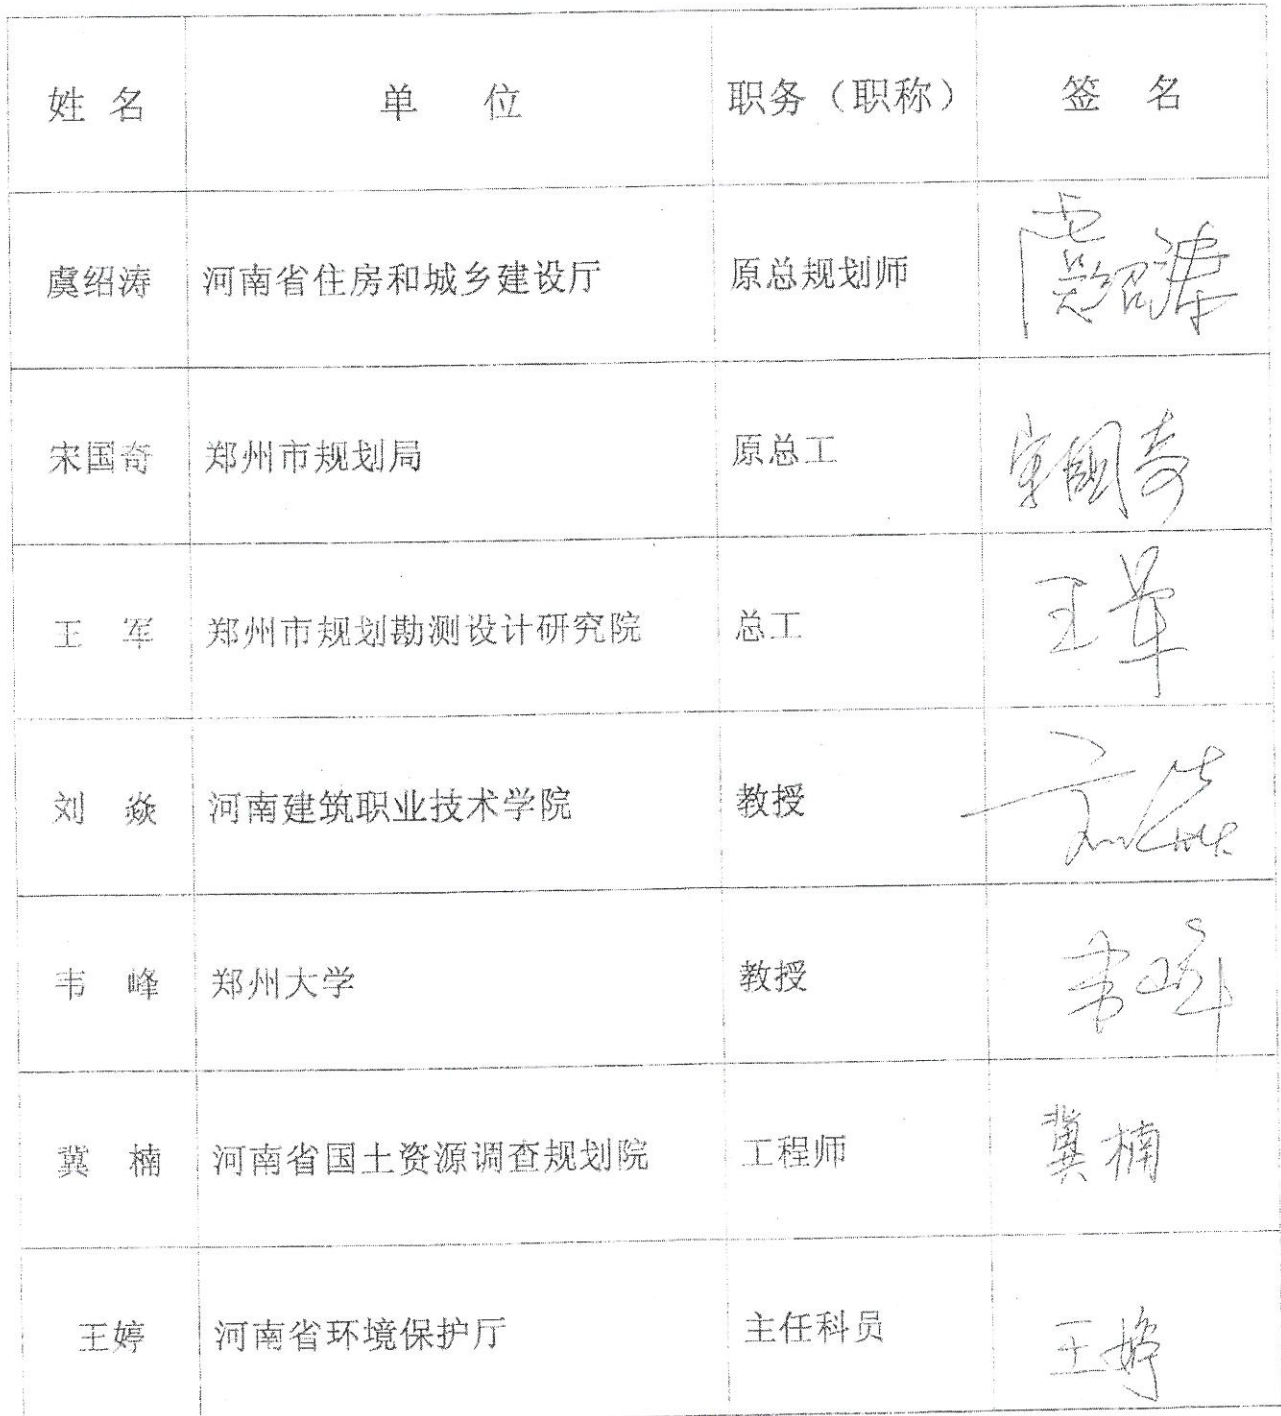 姓 名 单 位 职务（职称） 签 名
虞绍涛 河南省住房和城乡建设厅 原总规划师 虞绍涛
宋国奇 郑州市规划局 原总工 宋国奇
王 军 郑州市规划勘测设计研究院 总工 王军
刘 焱 河南建筑职业技术学院 教授 刘焱
韦 峰 郑州大学 教授 韦峰
冀 楠 河南省国土资源调查规划院 工程师 冀楠
王婷 河南省环境保护厅 主任科员 王婷